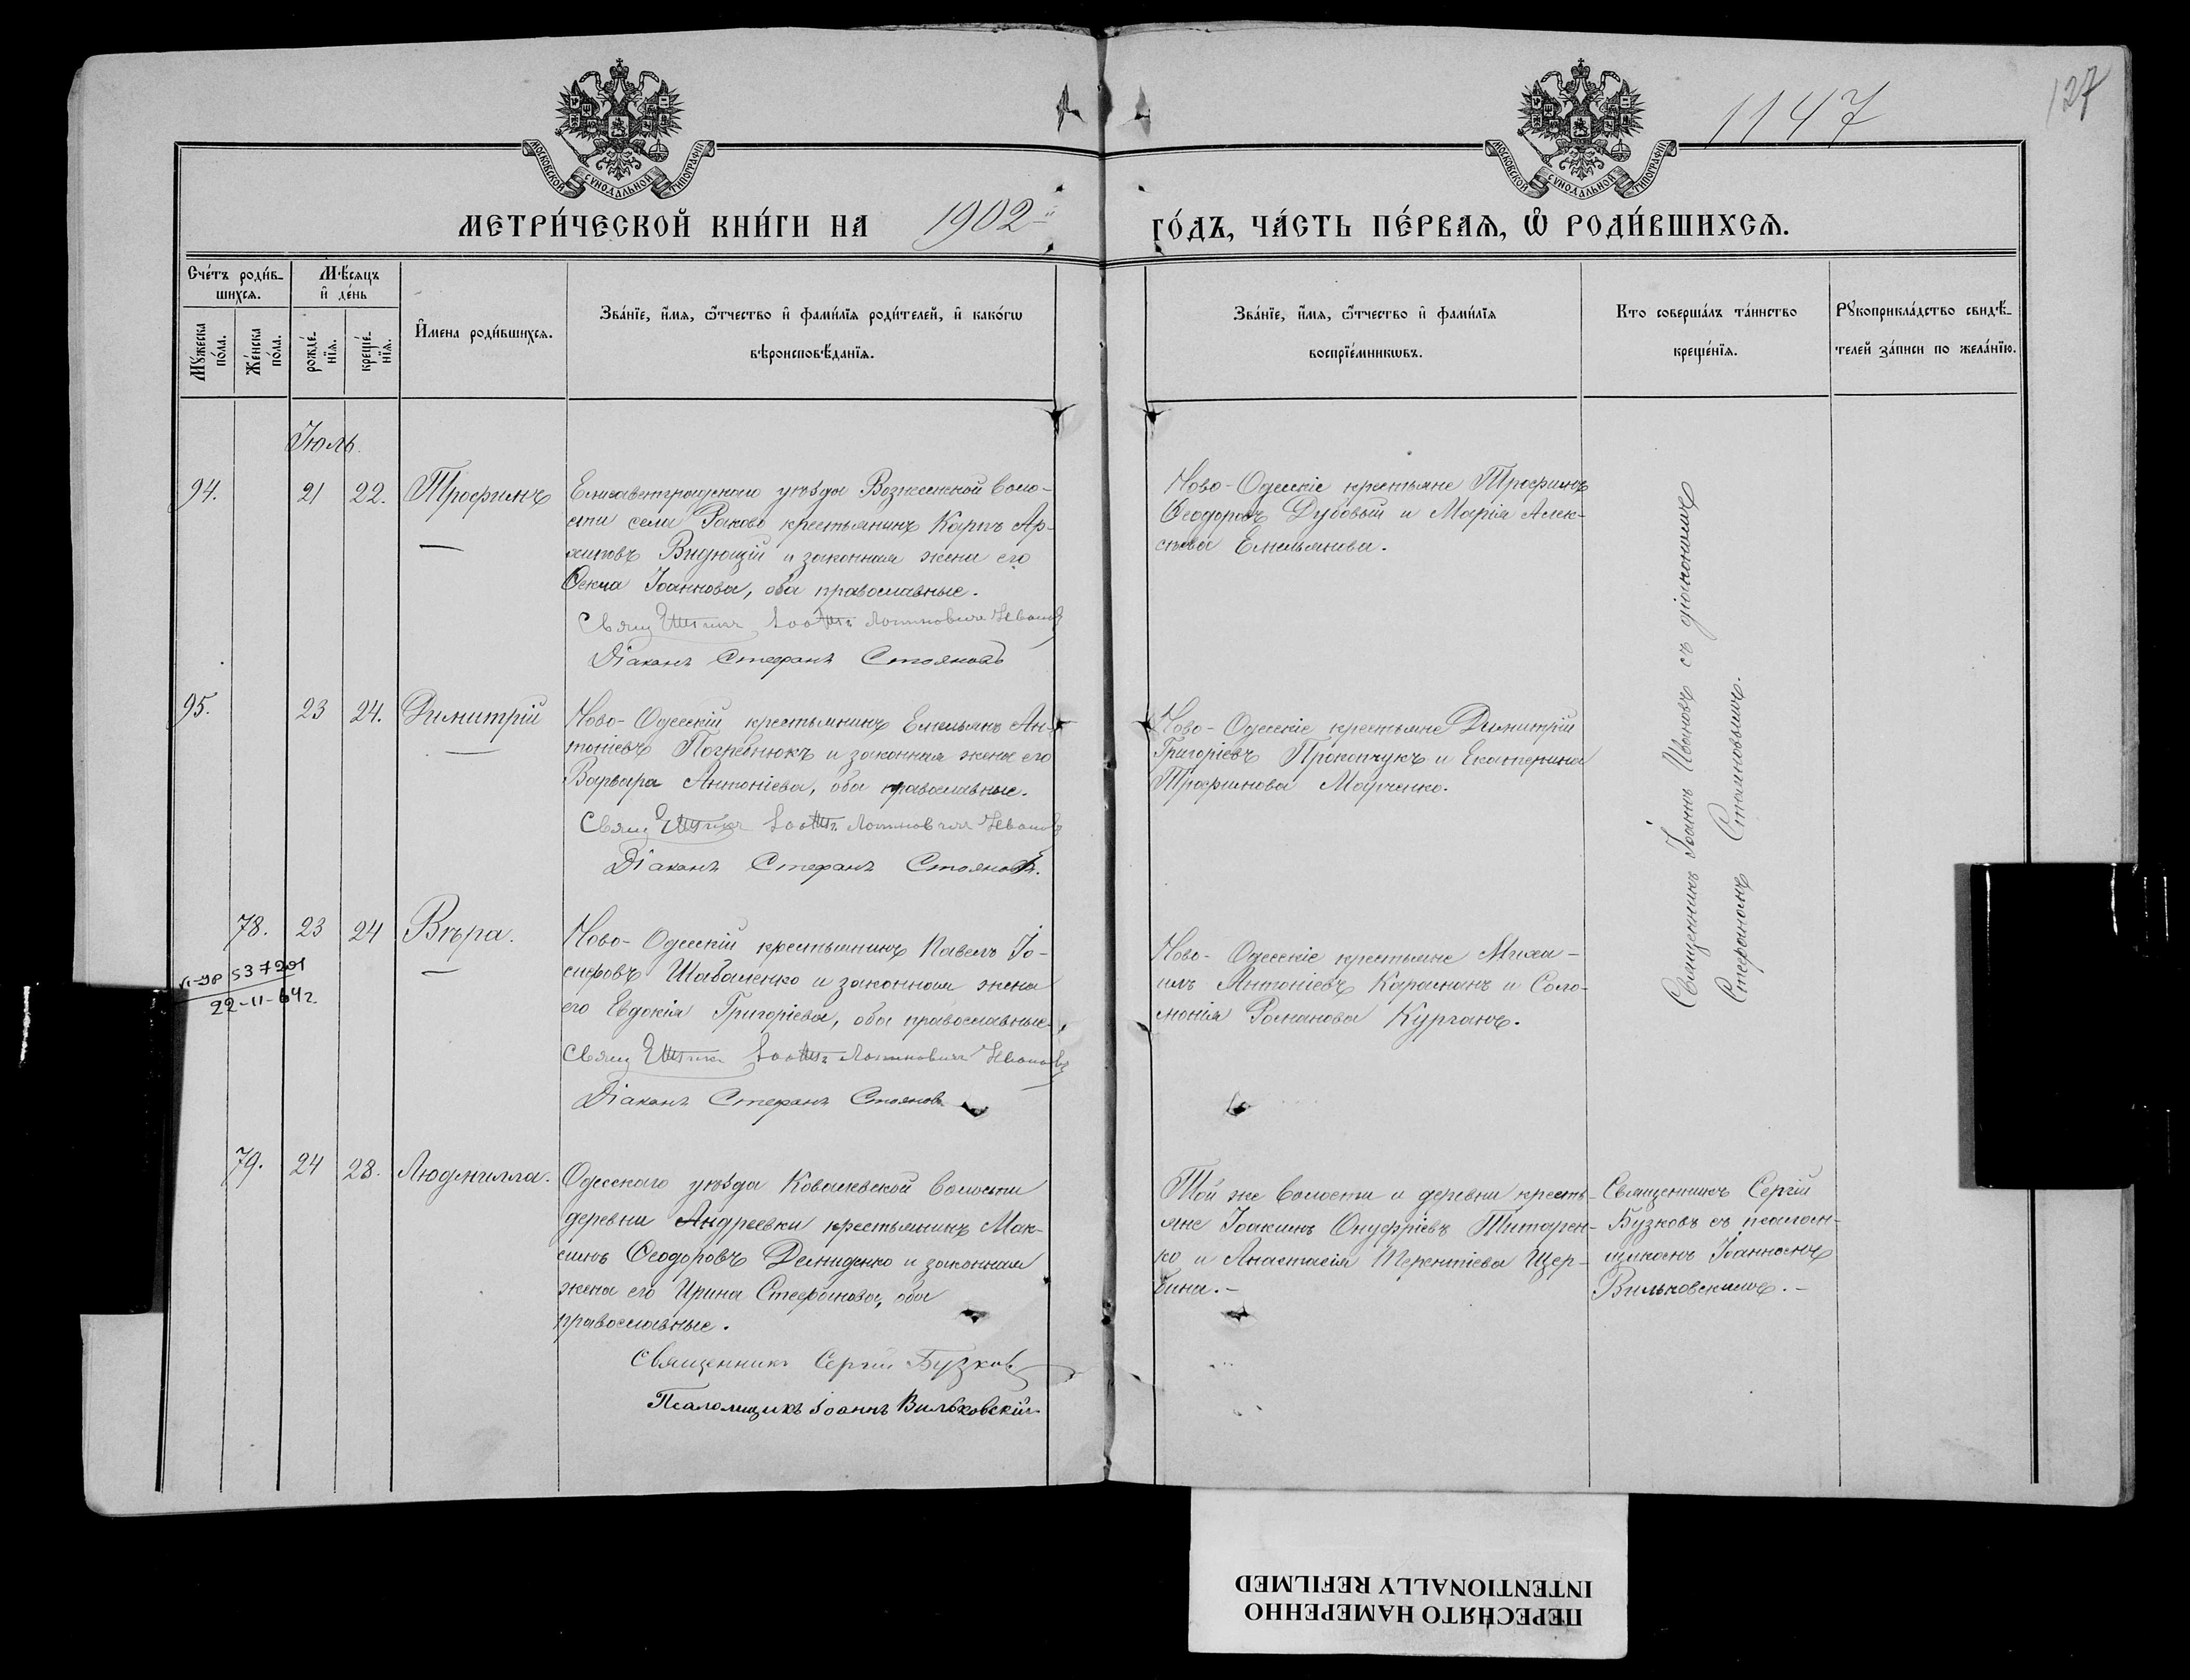 1147
127
МОСКОВСКОЙ СѴНОДАЛЬНОЙ ТИПОГРАФІИ
МОСКОВСКОЙ СѴНОДАЛЬНОЙ ТИПОГРАФІИ
МЕТРИ́ЧЕСКОЙ КНИ́ГИ НА 1902 ГО́ДЪ, ЧА́СТЬ ПЕ́РВАѦ, Ѡ҆ РОДИ́ВШИХСѦ.
Сче́тъ роди́в-
шихсѧ.
Мꙋ́жеска
по́ла.
Же́нска
по́ла.
Мѣ́сѧцъ
и҆ де́нь
рожде́-
нїѧ.
креще́-
нїѧ.
И҆мена роди́вшихсѧ.
Зва́нїе, и҆́мѧ, ѻ҆́тчество и҆ фами́лїѧ роди́телей, и҆ како́гѡ
вѣроисповѣ́данїѧ.
Зва́нїе, и҆́мѧ, ѻ҆́тчество и҆ фами́лїѧ
воспрїе́мникѡвъ.
Кто соверша́лъ та́инство
креще́нїѧ.
Рꙋкоприкла́дство свидѣ́-
телей за́писи по жела́нїю.
Іюль.
94. 21 22. Трофимъ
Елисаветградскаго уѣзда Вознесенской воло-
сти села Раково крестьянинъ Карпъ Ар-
хиповъ Видющій и законная жена его
Ѳекла Іоаннова, оба православные.
Діаконъ Стефанъ Стояновъ
Ново-Одесскіе крестьяне Трофимъ
Ѳеодоровъ Дубовый и Марія Алек-
сѣева Емельянова.
95. 23 24. Димитрій
Ново-Одесскій крестьянинъ Емельянъ Ан-
тоніевъ Погребнюкъ и законная жена его
Варвара Антоніева, оба православные.
Діаконъ Стефанъ Стояновъ.
Ново-Одесскіе крестьяне Димитрій
Григоріевъ Прокопчукъ и Екатерина
Трофимова Марченко.
78. 23 24 Вѣра.
22-11-64г.
Ново-Одесскій крестьянинъ Павелъ Іо-
сифовъ Шабаленко и законная жена
его Евдокія Григоріева, оба православные.
Діаконъ Стефанъ Стояновъ
Ново-Одесскіе крестьяне Миха-
илъ Антоніевъ Караманъ и Соло-
монія Романова Курганъ.
Священникъ Іоаннъ Ивановъ съ діакономъ
Стефаномъ Стояновымъ.
79. 24 28. Людмилла.
Одесскаго уѣзда Ковалевской волости
деревни Андреевки крестьянинъ Мак-
симъ Ѳеодоровъ Демиденко и законная
жена его Ирина Стефанова, оба
православные.
Священникъ Сергій Бузковъ
Псаломщикъ Іоаннъ Вильковскій
Той же волости и деревни кресть-
яне Іоакимъ Онуфріевъ Титарен-
ко и Анастасія Терентіева Щер-
бина.-
Священникъ Сергій
Бузковъ съ псалом-
щикомъ Іоанномъ
Вильковскимъ.-
ПЕРЕСНЯТО НАМЕРЕННО
INTENTIONALLY REFILMED